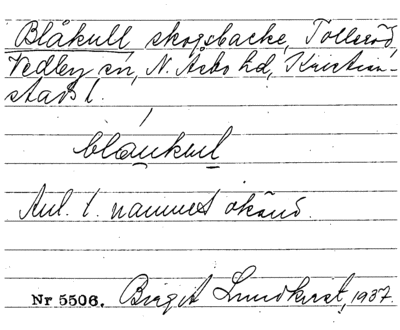 Blåkull skogsbacke, Tollseröd,
Vedby sn, N. Åsbo hd, Kristian-
stads l.
blåukul
Anl. t. namnet okänd.
Nr 5506. Birgit Lundkvist, 1937.